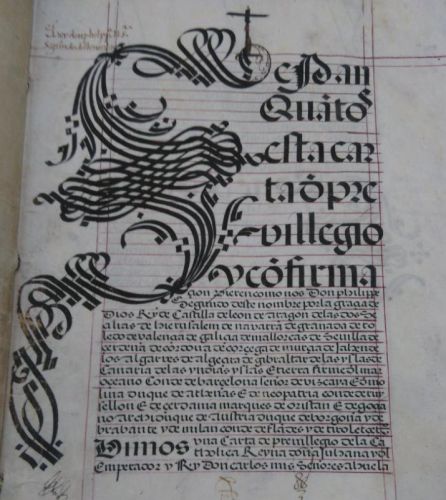 Sepan
Quãtos
esta car
ta õ pre
uillegio
y cõfirma
çion vieren como nos Don phelippe
Segundo deste nombre por la graçia de
Dios Rey de Castilla de leon de aragon de las dos
çiçilias de hierusalem de nauarra de granada de to
ledo de valençia de galizia de mallorcas de Seuilla de
çerdeña de cordoua de corçega de murçia de Jahen de
los algarues de algezira de gibraltar de las yslas de
Canaria de las yndias yslas e tierra firme del mar
oceano Conde de barçelona señor de vizcaya e de mo
lina duque de athenas e de neopatria conde de rui
sellon e de cerdania marques de oristan e de goçia
no Archiduque de austria duque de borgoña y de
brabante y de milan conde de flandes y de tirol etc
Vimos vna Carta de preuillegio de la Ca
tholica Reyna doña Juhana y del
Emperador y Rey Don carlos mis Señores abuela